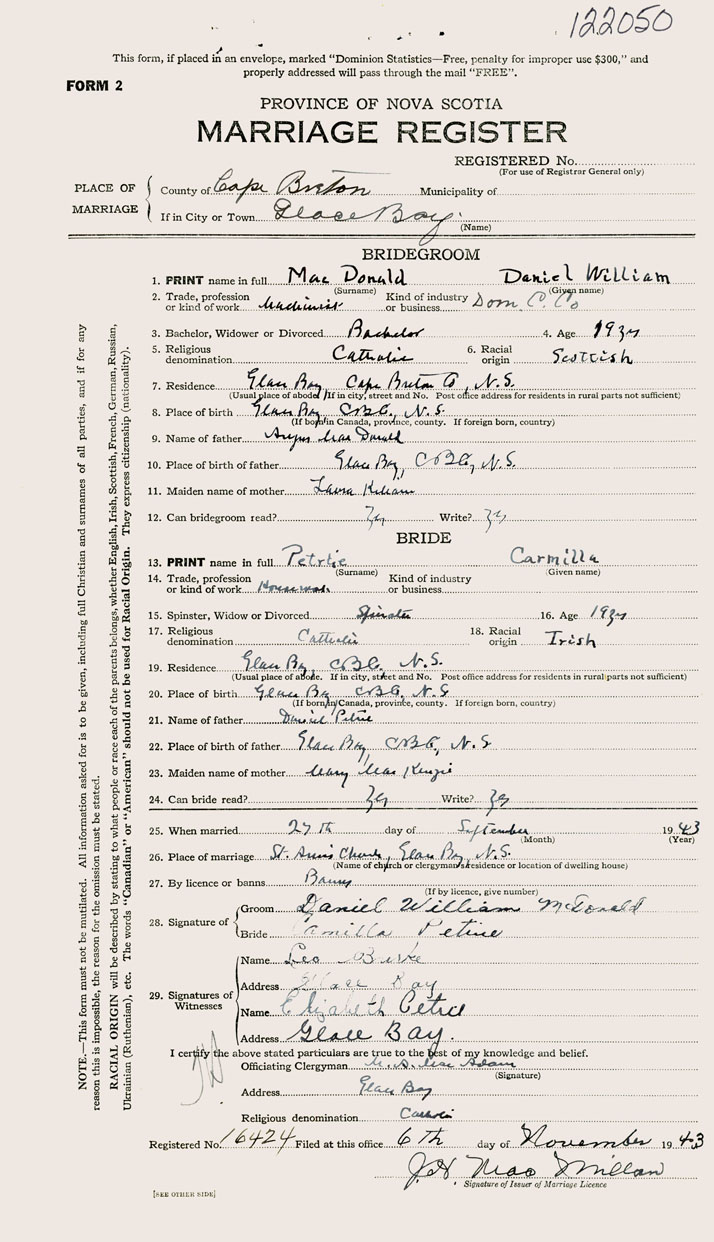 122050
This form, if placed in an envelope, marked "Dominion Statistics—Free, penalty for improper use $300," and
properly addressed will pass through the mail "FREE".
FORM 2
PROVINCE OF NOVA SCOTIA
MARRIAGE REGISTER
REGISTERED No.
(For use of Registrar General only)
PLACE OF MARRIAGE
County of Cape Breton Municipality of
If in City or Town Glace Bay.
(Name)
BRIDEGROOM
1. PRINT name in full Mac Donald Daniel William
(Surname) (Given name)
2. Trade, profession or kind of work Machinist Kind of industry or business Dom. C. Co
3. Bachelor, Widower or Divorced Bachelor 4. Age 19
5. Religious denomination Catholic 6. Racial origin Scottish
7. Residence Glace Bay, Cape Breton Co, N.S.
(Usual place of abode. If in city, street and No. Post office address for residents in rural parts not sufficient)
8. Place of birth Glace Bay, C.B.Co., N.S.
(If born in Canada, province, county. If foreign born, country)
9. Name of father Angus Mac Donald
10. Place of birth of father Glace Bay, C.B.Co, N.S.
11. Maiden name of mother Laura
12. Can bridegroom read? Yes Write? Yes
BRIDE
13. PRINT name in full Petrie Carmilla
(Surname) (Given name)
14. Trade, profession or kind of work Kind of industry or business
15. Spinster, Widow or Divorced Spinster 16. Age 19
17. Religious denomination Catholic 18. Racial origin Irish
19. Residence Glace Bay, C.B.Co. N.S.
(Usual place of abode. If in city, street and No. Post office address for residents in rural parts not sufficient)
20. Place of birth Glace Bay C.B.Co, N.S
(If born in Canada, province, county. If foreign born, country)
21. Name of father Daniel Petrie
22. Place of birth of father Glace Bay, C.B.Co, N.S
23. Maiden name of mother Mary Mac Kenzie
24. Can bride read? Yes Write? Yes
25. When married 27th day of September 1943
(Month) (Year)
26. Place of marriage St. Ann's Church, Glace Bay, N.S.
(Name of church or clergyman's residence or location of dwelling house)
27. By licence or banns Banns
(If by licence, give number)
28. Signature of
Groom Daniel William McDonald
Bride Camilla Petrie
29. Signatures of Witnesses
Name Leo Burke
Address Glace Bay
Name Elizabeth Petrie
Address Glace Bay.
I certify the above stated particulars are true to the best of my knowledge and belief.
Officiating Clergyman Mac Adam
(Signature)
Address Glace Bay
Religious denomination Catholic
Registered No. 16424 Filed at this office 6th day of November 1943
J.H. Mac Millan
Signature of Issuer of Marriage Licence
[SEE OTHER SIDE]
NOTE.—This form must not be mutilated. All information asked for is to be given, including full Christian and surnames of all parties, and if for any
reason this is impossible, the reason for the omission must be stated.
RACIAL ORIGIN will be described by stating to what people or race each of the parents belongs, whether English, Irish, Scottish, French, German, Russian,
Ukrainian (Ruthenian), etc. The words "Canadian" or "American" should not be used for Racial Origin. They express citizenship (nationality).